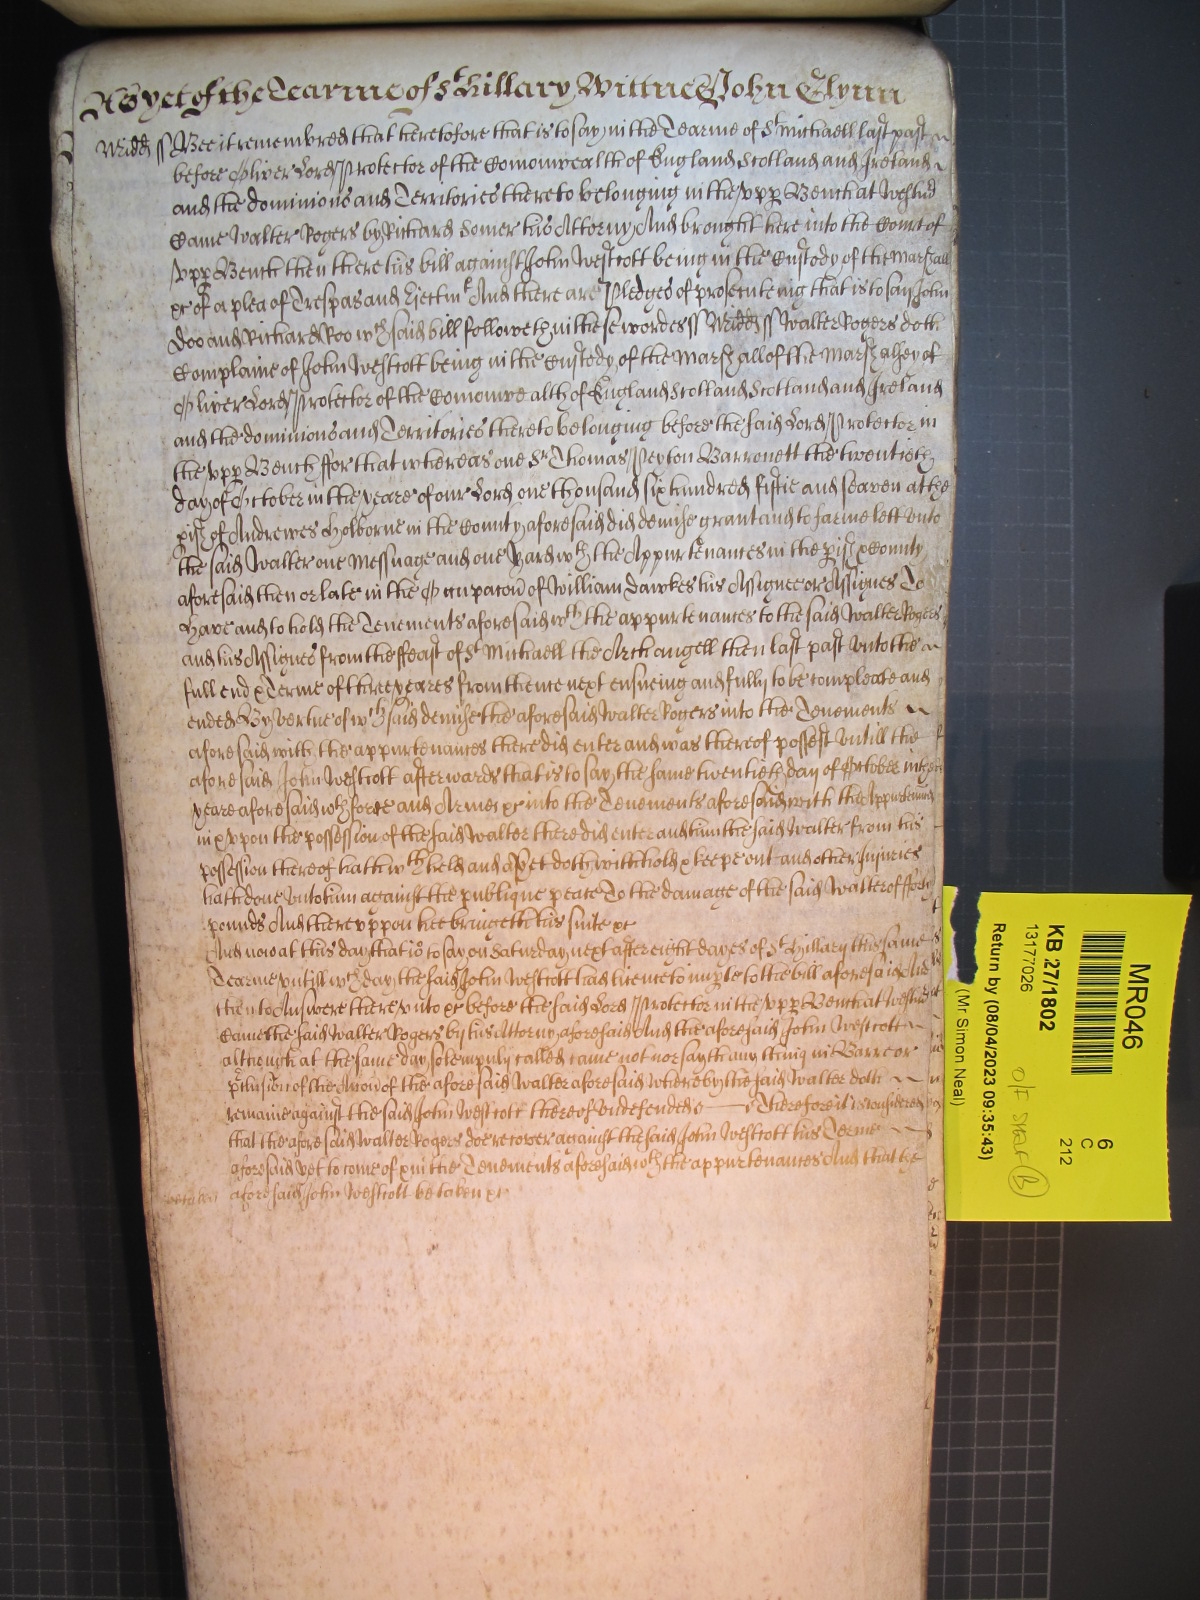 As yet of the Tearme of St Hillary Wittnes John Glynn
Midd ss Bee it remembred that heretofore that is to say in the Tearme of St Michaell last past
before Oliver Lord Protector of the Comonwealth of England Scotland and Ireland
and the dominions and Territories thereto belonging in the upp Bench at Westmr
Came Walter Rogers by Richard Somer his Attorny And brought here into the Court of
upp Bench then there his bill against John Westcott being in the Custody of the Marshall
xc of a plea of Trespas and Ejectmt And there are Pledges of prosecuteing that is to say John
Doo and Richard Roo wch said bill followeth in these wordes ss Midd ss Walter Rogers doth
Complaine of John Westcott being in the Custody of the Marshall of the Marshalsey of
Oliver Lord Protector of the Comonwealth of England Scotland Scotland and Ireland
and the dominions and Territories thereto belonging before the said Lord Protector in
the upp Bench ffor that whereas one Sr Thomas Peyton Barronett the twentieth
day of October in the yeare of our Lord one thousand six hundred fiftie and seaven at the
pish of Andrewes Holborne in the County aforesaid did demise grant and to farme lett unto
the said Walter one Messuage and one Yard wth the Appurtenances in the pish & County
aforesaid then or late in the Occupacon of William Dawkes his Assignee or Assignes To
Have and to hold the Tenements aforesaid wth the appurtenances to the said Walter Rogers
and his Assignes from the ffeast of St Michaell the Archangell then last past unto the
full end & Terme of three yeares from thence next ensueing and fully to be compleate and
ended By vertue of wch said demise the aforesaid Walter Rogers into the Tenements
aforesaid with the appurtenances there did enter and was thereof possest untill the
aforesaid John Westcott afterwards that is to say the same twentieth day of October in the
yeare aforesaid wth force and Armes xc into the Tenements aforesaid with the Appurtenances
in & vpon the possession of the said Walter there did enter and him the said Walter from his
possession thereof hath wthheld and as yet doth withhold & keepe out and other Injuries
hath done unto him against the publique peace To the damage of the said Walter of fforty
pounds And thereuppon hee bringeth his suite xc
And now at this day that is to say on Saturday next after eight dayes of St Hillary this same
Tearme untill wch day the said John Westcott had licence to imple to the bill aforesaid And
then to Answere thereunto xc before the said Lord Protector in the upp Bench at Westmr
Came the said Walter Rogers by his Attorny aforesaid And the aforesaid John Westcott
although at the same day solempnly called came not nor sayth any thing in Barre or
pclusion of the Accon of the aforesaid Walter aforesaid whereby the said Walter doth
remaine against the said John Westcott thereof undefended Therefore it is considered
that the aforesaid Walter Rogers doe recover against the said John Westcott his Terme
aforesaid yet to come of & in the Tenements aforesaid wth the appurtenances And that the
aforesaid John Westcott be taken xc
MR046
6
C
212
KB 27/1802
13177026
O/F
Return by (08/04/2023 09:35:43)
(Mr Simon Neal)